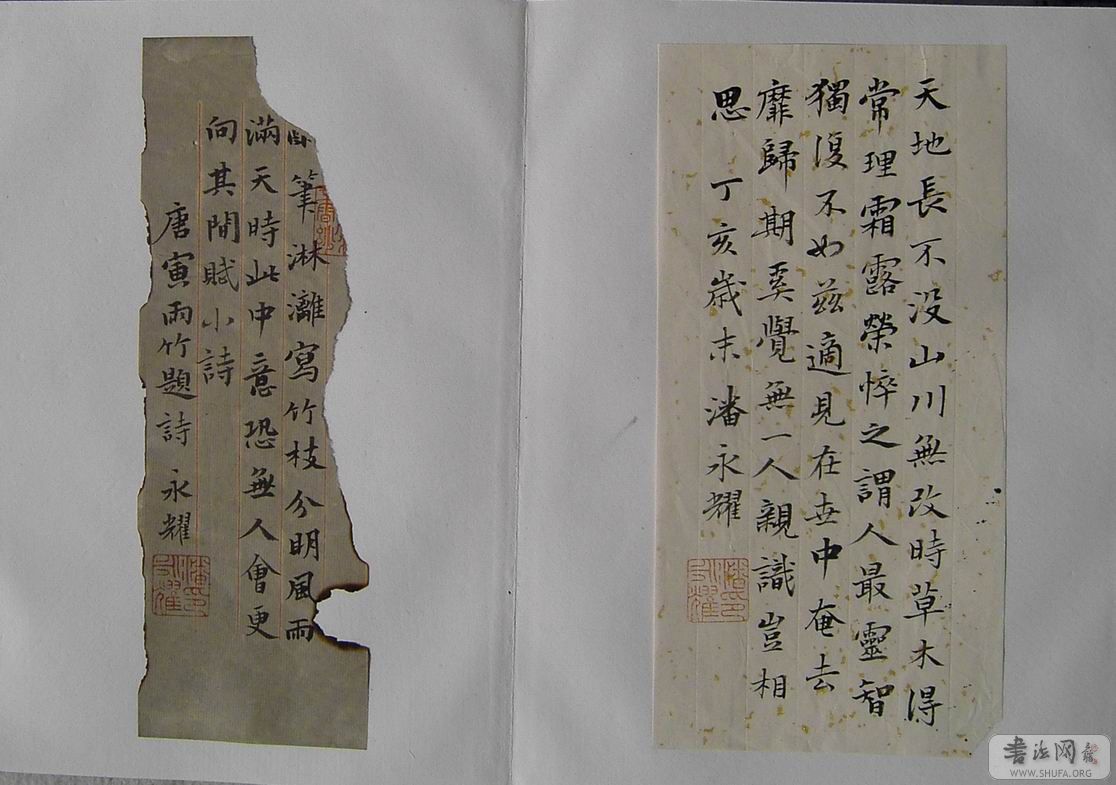 天地長不没山川無改時草木得
常理霜露榮悴之謂人最靈智
獨復不如兹適見在世中奄去
靡歸期奚覺無一人親識豈相
思 丁亥歲末潘永耀
筆淋漓寫竹枝分明風雨
滿天時此中意恐無人會更
向其間賦小詩
唐寅雨竹題詩 永耀
書法网
WWW.SHUFA.ORG